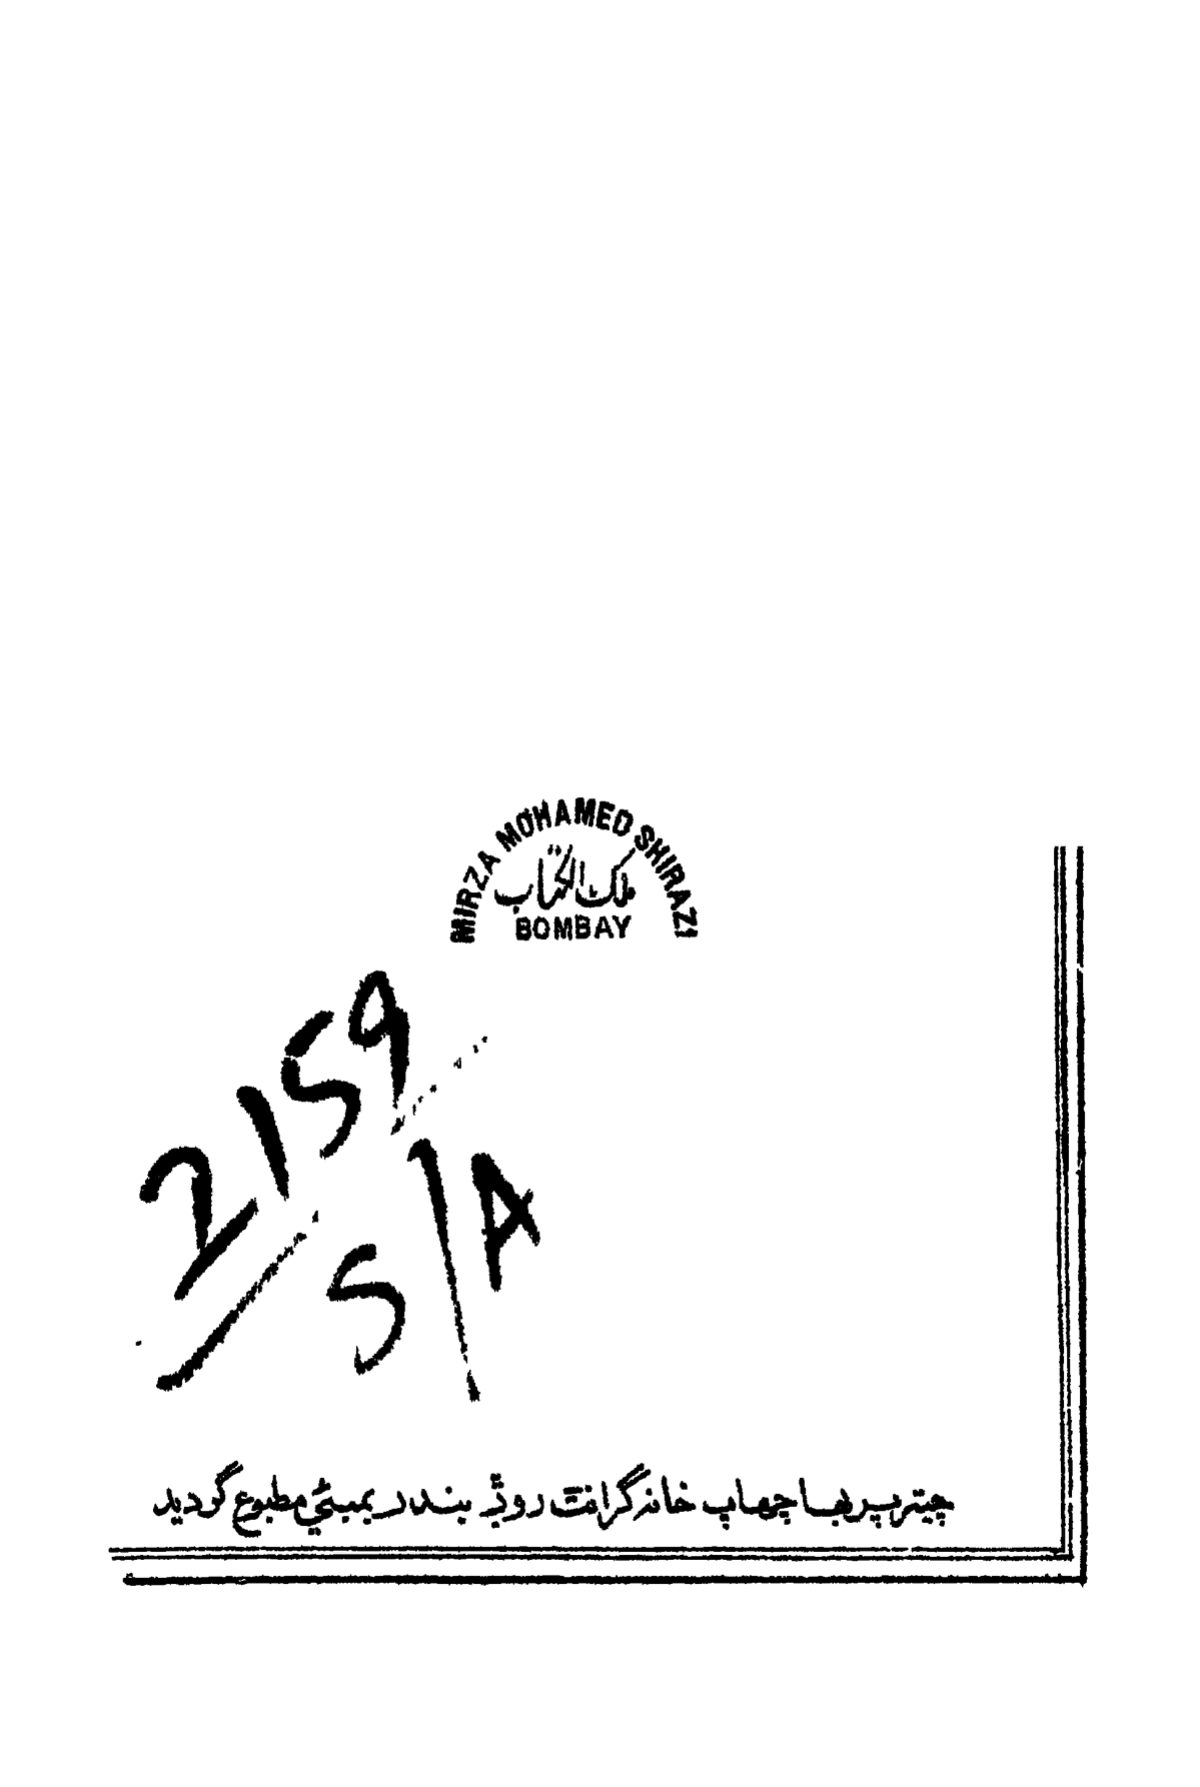 MIRZA MOHAMED SHIRAZI
ملك الكتاب
BOMBAY
2159
5/A
چیتر پربها چهاپ خانه گرانت روڈ بندر بمبئي مطبوع گردید